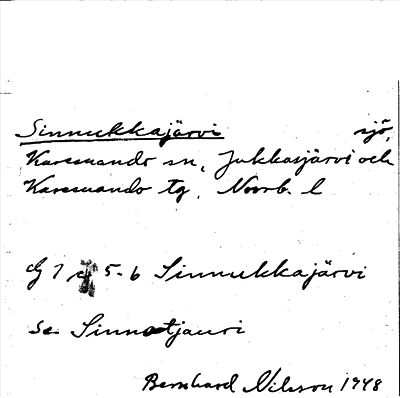 Sinnukkajärvi sjö,
Karesuando sn, Jukkasjärvi och
Karesuando tg, Norrb. l
G 7 5-6 Sinnukkajärvi
se Sinnotjauri
Bernhard Nilsson 1948